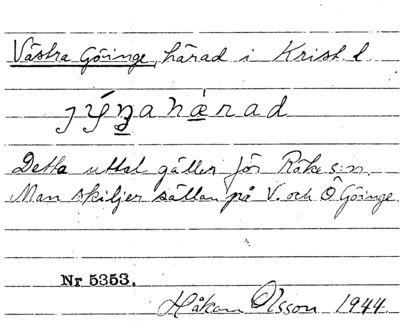 Västra Göinge, härad i Krist. l.
jýŋahærad
Detta uttal gäller för Röke s:n.
Man skiljer sällan på V. och Ö Göinge.
Nr 5353.
Håkan Olsson 1944.